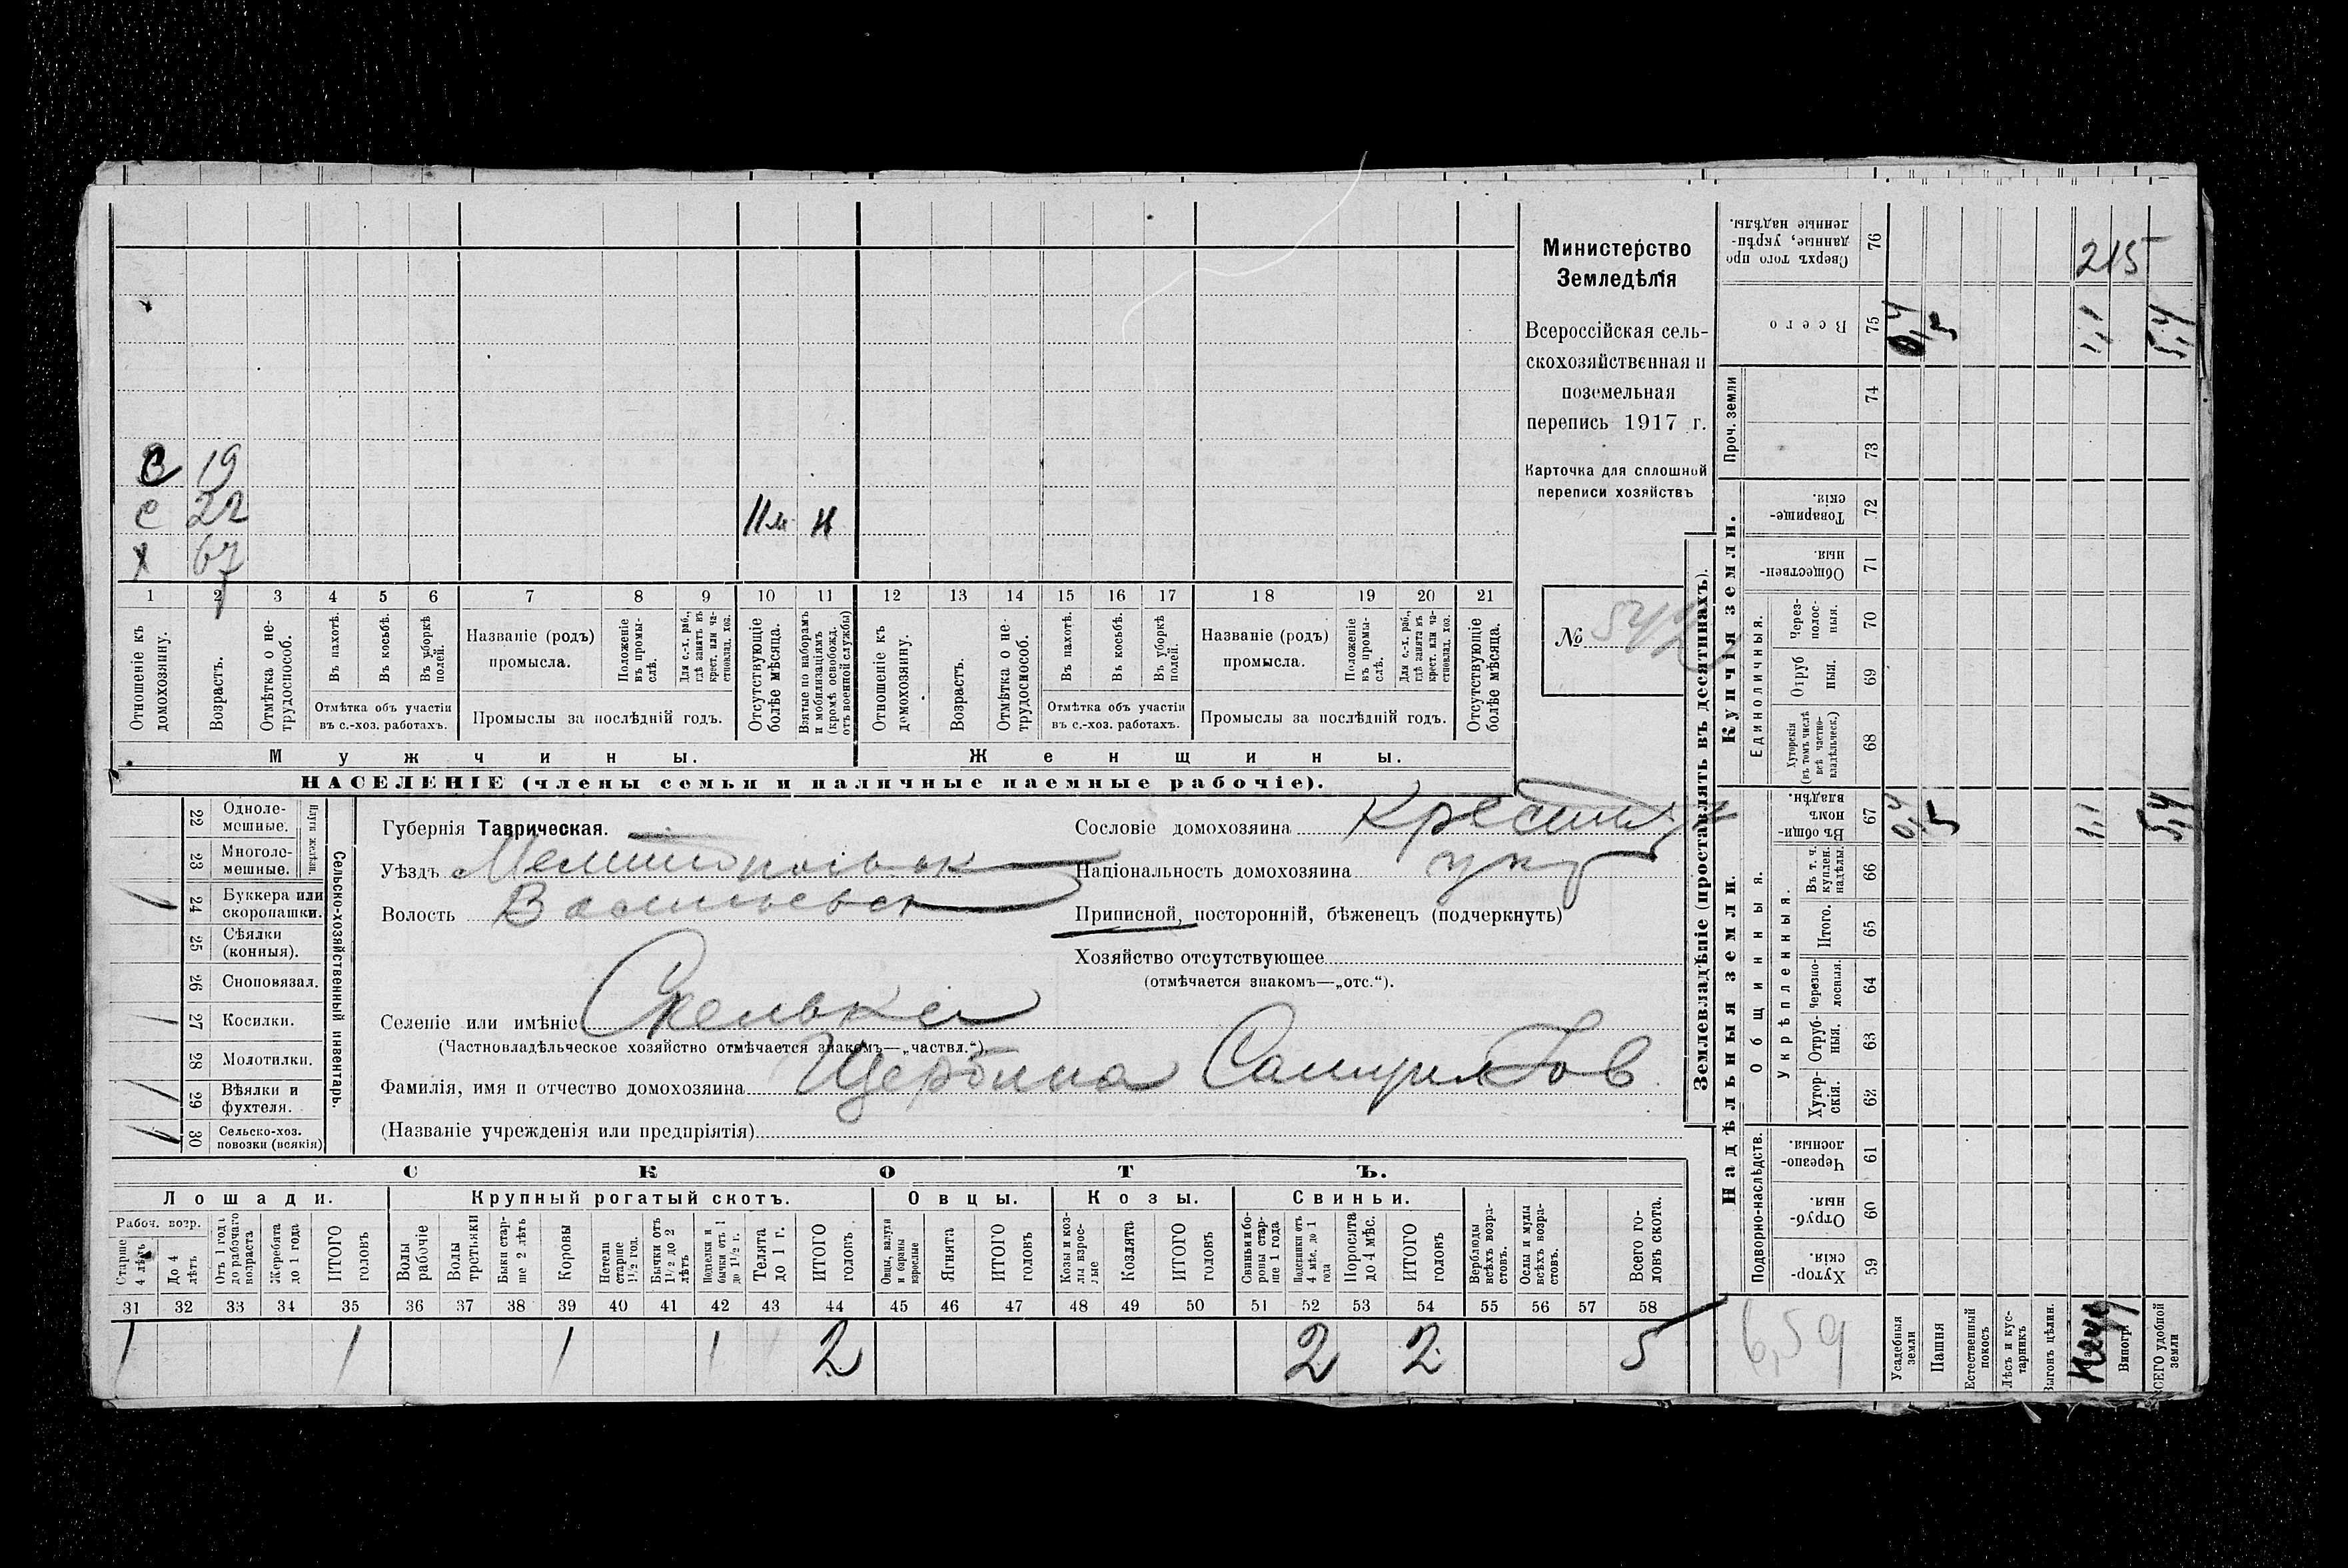 С 19
с 22 11м н
х 67
1 2 3 4 5 6 7 8 9 10 11 12 13 14 15 16 17 18 19 20 21
Отношеніе къ домохозяину.
Возрастъ.
Отмѣтка о не-трудоспособ.
Въ пахотѣ.
Въ косьбѣ.
Въ уборкѣ полей.
Отмѣтка объ участіи
въ с.-хоз. работахъ.
Названіе (родъ)
промысла.
Положеніе въ промы-слѣ.
Для с.-х. раб., гдѣ занятъ въ крест. или ча-стновлад. хоз.
Промыслы за послѣдній годъ.
Отсутствующіе болѣе мѣсяца.
Взятые по наборамъ и мобилизаціямъ (кромѣ освобожд. отъ военной службы)
Отношеніе къ домохозяину.
Возрастъ.
Отмѣтка о не-трудоспособ.
Въ пахотѣ.
Въ косьбѣ.
Въ уборкѣ полей.
Отмѣтка объ участіи
въ с.-хоз. работахъ.
Названіе (родъ)
промысла.
Положеніе въ промы-слѣ.
Для с.-х. раб., гдѣ занята въ крест. или ча-стновлад. хоз.
Промыслы за послѣдній годъ.
Отсутствующіе болѣе мѣсяца.
Мужчины. Женщины.
НАСЕЛЕНІЕ (члены семьи и наличные наемные рабочіе).
Министерство
Земледѣлія
Всероссійская сель-
скохозяйственная и
поземельная
перепись 1917 г.
Карточка для сплошной
переписи хозяйствъ
№ 542
Сельско-хозяйственный инвентарь.
Плуги желѣзн.
22 Одноле-
мешные.
23 Многоле-
мешные.
24 Буккера или
скоропашки.
25 Сѣялки
(конныя).
26 Сноповязал.
27 Косилки.
28 Молотилки.
29 Вѣялки и
фухтеля.
30 Сельско-хоз.
повозки (всякія)
Губернія Таврическая.
Уѣздъ Мелитопольск
Волость Васильевск
Селеніе или имѣніе Скелька
(Частновладѣльческое хозяйство отмѣчается знакомъ—„частвл.“)
Фамилія, имя и отчество домохозяина Щербина
(Названіе учрежденія или предпріятія)
Сословіе домохозяина
Національность домохозяина укр
Приписной, посторонній, бѣженецъ (подчеркнуть)
Хозяйство отсутствующее
(отмѣчается знакомъ—„отс.“).
СКОТЪ.
Лошади. Крупный рогатый скотъ. Овцы. Козы. Свиньи.
Рабоч. возр.
Старше 4 лѣтъ
До 4 лѣтъ
Отъ 1 года до рабочаго возраста
Жеребята до 1 года
ИТОГО головъ
Волы рабочіе
Волы третьяки
Быки стар-ше 2 лѣтъ
Коровы
Нетели старше 1½ год.
Бычки отъ 1½ до 2 лѣтъ
Подтелки и бычки отъ 1 до 1½ г.
Телята до 1 г.
ИТОГО головъ
Овцы, валухи и бараны взрослые
Ягнята
ИТОГО головъ
Козы и коз-лы взрос-лые
Козлята
ИТОГО головъ
Свиньи и бо-ровы стар-ше 1 года
Подсвинки отъ 4 мѣс. до 1 года
Поросята до 4 мѣс.
ИТОГО головъ
Верблюды всѣхъ возра-стовъ.
Ослы и мулы всѣхъ возра-стовъ.
Всего го-ловъ скота.
31 32 33 34 35 36 37 38 39 40 41 42 43 44 45 46 47 48 49 50 51 52 53 54 55 56 57 58
1 1 1 1 2 2 2 5
Землевладѣніе (проставлять въ десятинахъ).
Надѣльныя земли. Купчія земли.
Подворно-наслѣдств.
Общинныя.
Укрѣпленныя.
Единоличныя.
Проч. земли
Сверхъ того про данные, укрѣп-ленные надѣлы. 76
215
Всего 75 0,4 5 5,4
74
73
Товарище-скія. 72
Обществен-ныя. 71
Через-полос-ныя. 70
Отруб ныя. 69
Хуторскія (въ томъ числѣ всѣ частно-владѣльческ.) 68
Въ общи-номъ владѣн. 67 0,4 5 5,4
Въ т. ч. куплен. надѣлы. 66
Итого. 65
Черезпо-лосныя. 64
Отруб-ныя. 63
Хутор-скія. 62
Черезпо-лосныя. 61
Отруб-ныя. 60
Хутор-скія. 59
6,59
Усадебныя земли
Пашня
Естественный покосъ
Лѣсъ и кус-тарникъ
Выгонъ цѣлин.
Виногр.
ВСЕГО удобной земли